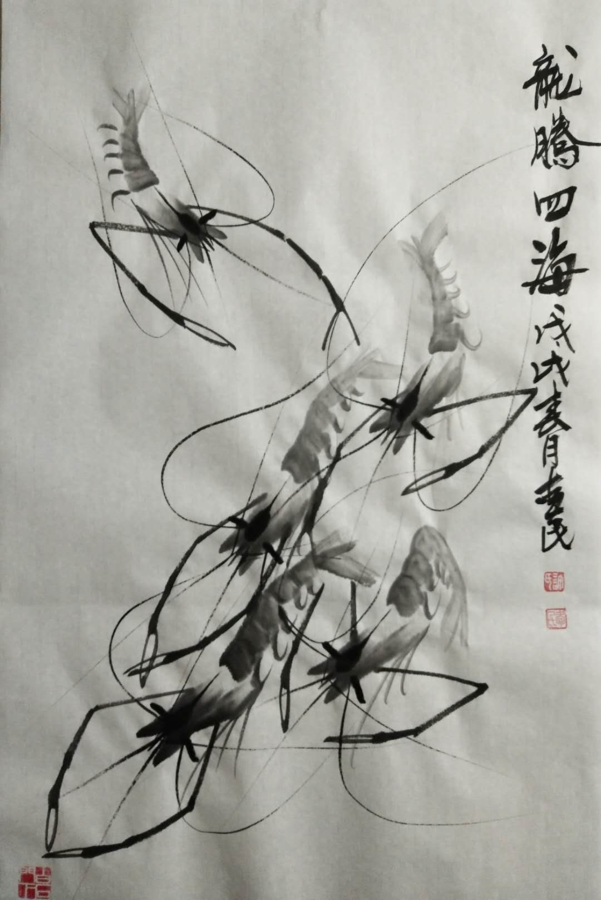 龍騰四海戊戌春月志民